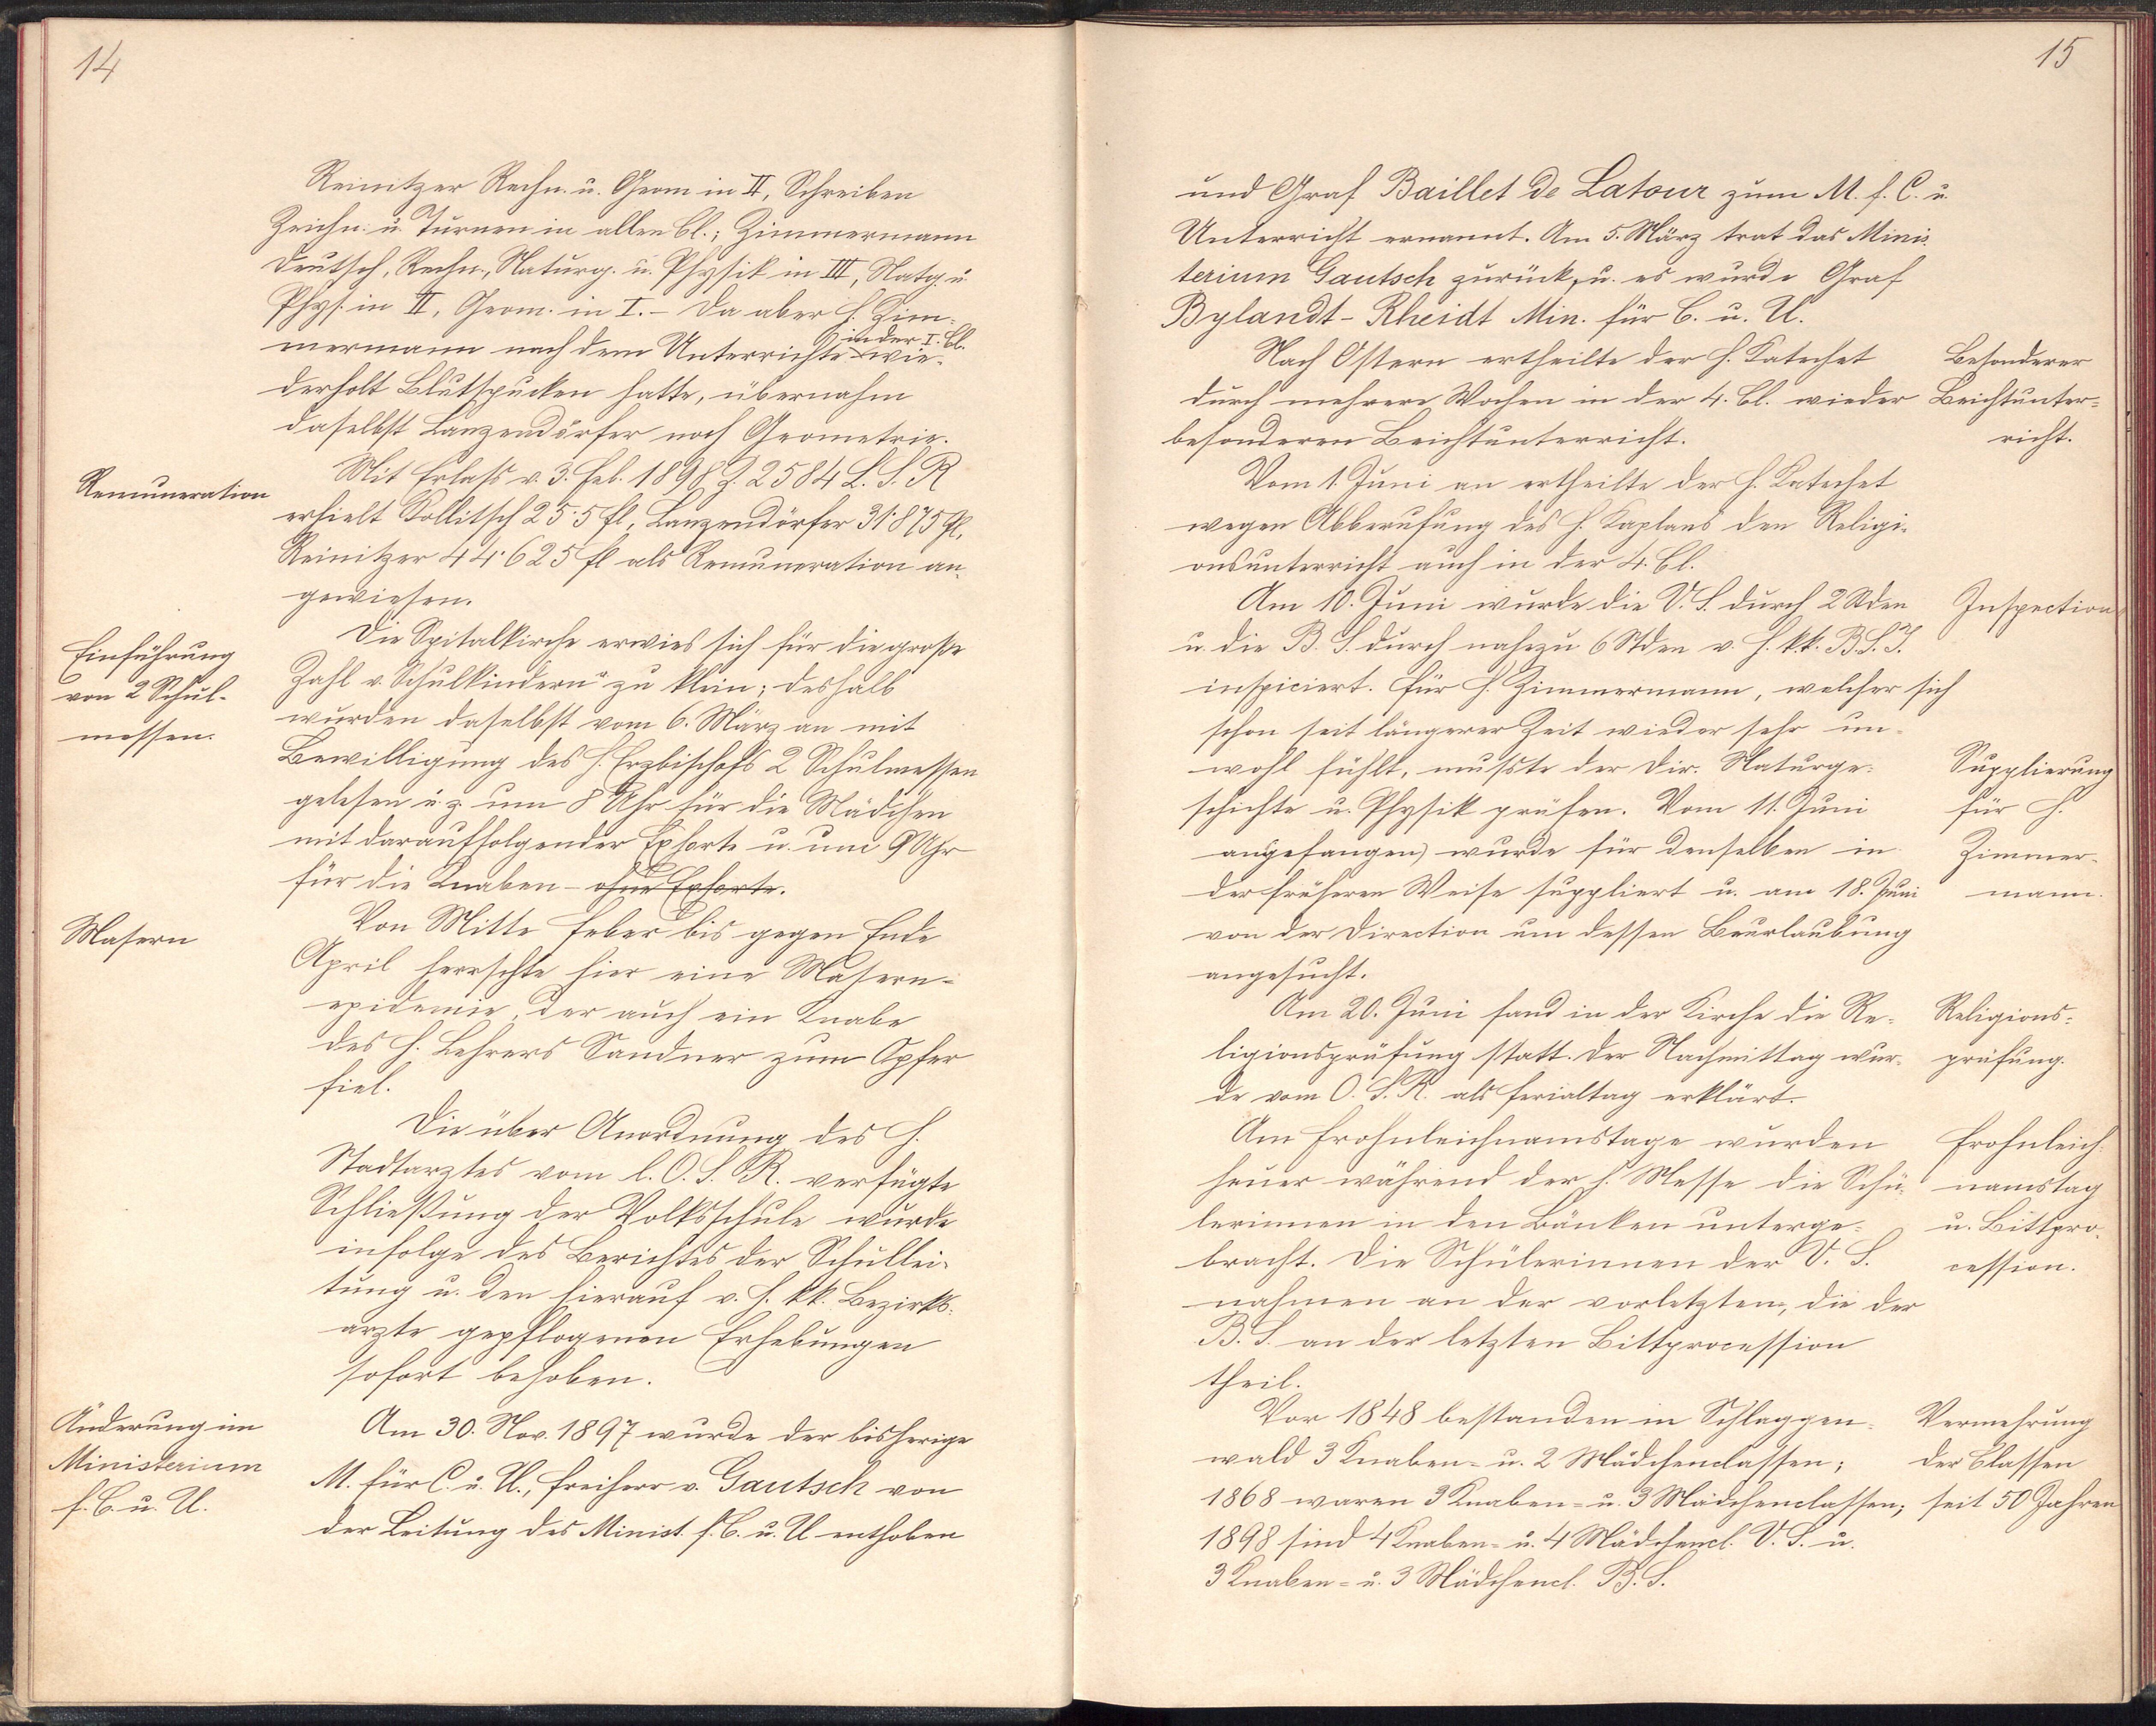 14
Reinitzer Rechn. u. Geom in II, Schreiben
Zeichn. u. Turnen in allen Cl.; Zimmermann
Deutsch, Rechn., Naturg. u. Physik in III, Natg. u.
Phys. in II, Geom. in I. – Da aber H. Zim-
mermann nach dem Unterrichte in der I. Cl. wie-
derholt Blutspucken hatte, übernahm
daselbst Lanzendörfer noch Geometrie.
Remuneration
Mit Erlass v. 3. Feb. 1898 Z. 2584 L. S. R
erhielt Kollitsch 25·5 fl, Lanzendörfer 31·875 fl,
Reinitzer 44·625 fl als Remuneration an-
gewiesen.
Einführung
von 2 Schul-
messen.
Die Spitalkirche erwies sich für die große
Zahl v. Schulkindern zu klein; deshalb
wurden daselbst vom 6. März an mit
Bewilligung des H. Erzbischofs 2 Schulmessen
gelesen u. z. um 8 Uhr für die Mädchen
mit darauffolgender Exhorte u. um 9 Uhr
für die Knaben – ohne Exhorte.
Masern
Von Mitte Feber bis gegen Ende
April herrschte hier eine Masern-
epidemie, der auch ein Knabe
des H. Lehrers Sandner zum Opfer
fiel.
Die über Anordnung des H.
Stadtarztes vom l. O. S. R. verfügte
Schließung der Volksschule wurde
infolge des Berichtes der Schullei-
tung u. den hierauf v. H. kk. Bezirks-
arzte gepflogenen Erhebungen
sofort behoben.
Änderung im
Ministerium
f. C. u. U.
Am 30. Nov. 1897 wurde der bisherige
M. für C. u. U., Freiherr v. Gautsch von
der Leitung des Minist. f. C. u. U enthoben
15
und Graf Baillet de Latour zum M. f. C. u.
Unterricht ernannt. Am 5. März trat das Minis-
terium Gautsch zurück, u. es wurde Graf
Bylandt-Rheidt Min. für C. u. U.
Besonderer
Beichtunter-
richt.
Nach Ostern ertheilte der H. Katechet
durch mehrere Wochen in der 4. Cl. wieder
besonderen Beichtunterricht.
Vom 1. Juni an ertheilte der H. Katechet
wegen Abberufung des H. Kaplans den Religi-
onsunterricht auch in der 4. Cl.
Inspection
Am 10. Juni wurde die V. S. durch 2 Stden
u. die B. S. durch nahezu 6 Stden v. H. k.k. B.S.I.
inspiciert. Für H. Zimmermann, welcher sich
schon seit längerer Zeit wieder sehr un-
wohl fühlt, mußte der Dir. Naturge-
schichte u. Physik prüfen. Vom 11. Juni
angefangen wurde für denselben in
der früheren Weise suppliert u. am 18. Juni
von der Direction um dessen Beurlaubung
angesucht.
Supplierung
für H.
Zimmer-
mann.
Am 20. Juni fand in der Kirche die Re-
ligionsprüfung statt. Der Nachmittag wur-
de vom O. S. R. als Ferialtag erklärt.
Religions-
prüfung.
Am Frohnleichnamstage wurden
heuer während der h. Messe die Schü-
lerinnen in den Bänken unterge-
bracht. Die Schülerinnen der V. S.
nahmen an der vorletzten, die der
B. S. an der letzten Bittprocession
theil.
Frohnleich-
namstag
u. Bittpro-
cession.
Vor 1848 bestanden in Schlaggen-
wald 3 Knaben- u. 2 Mädchenclassen;
1868 waren 3 Knaben- u. 3 Mädchenclassen;
1898 sind 4 Knaben- u. 4 Mädchencl. V. S. u.
3 Knaben- u. 3 Mädchencl. B. S.
Vermehrung
der Classen
seit 50 Jahren